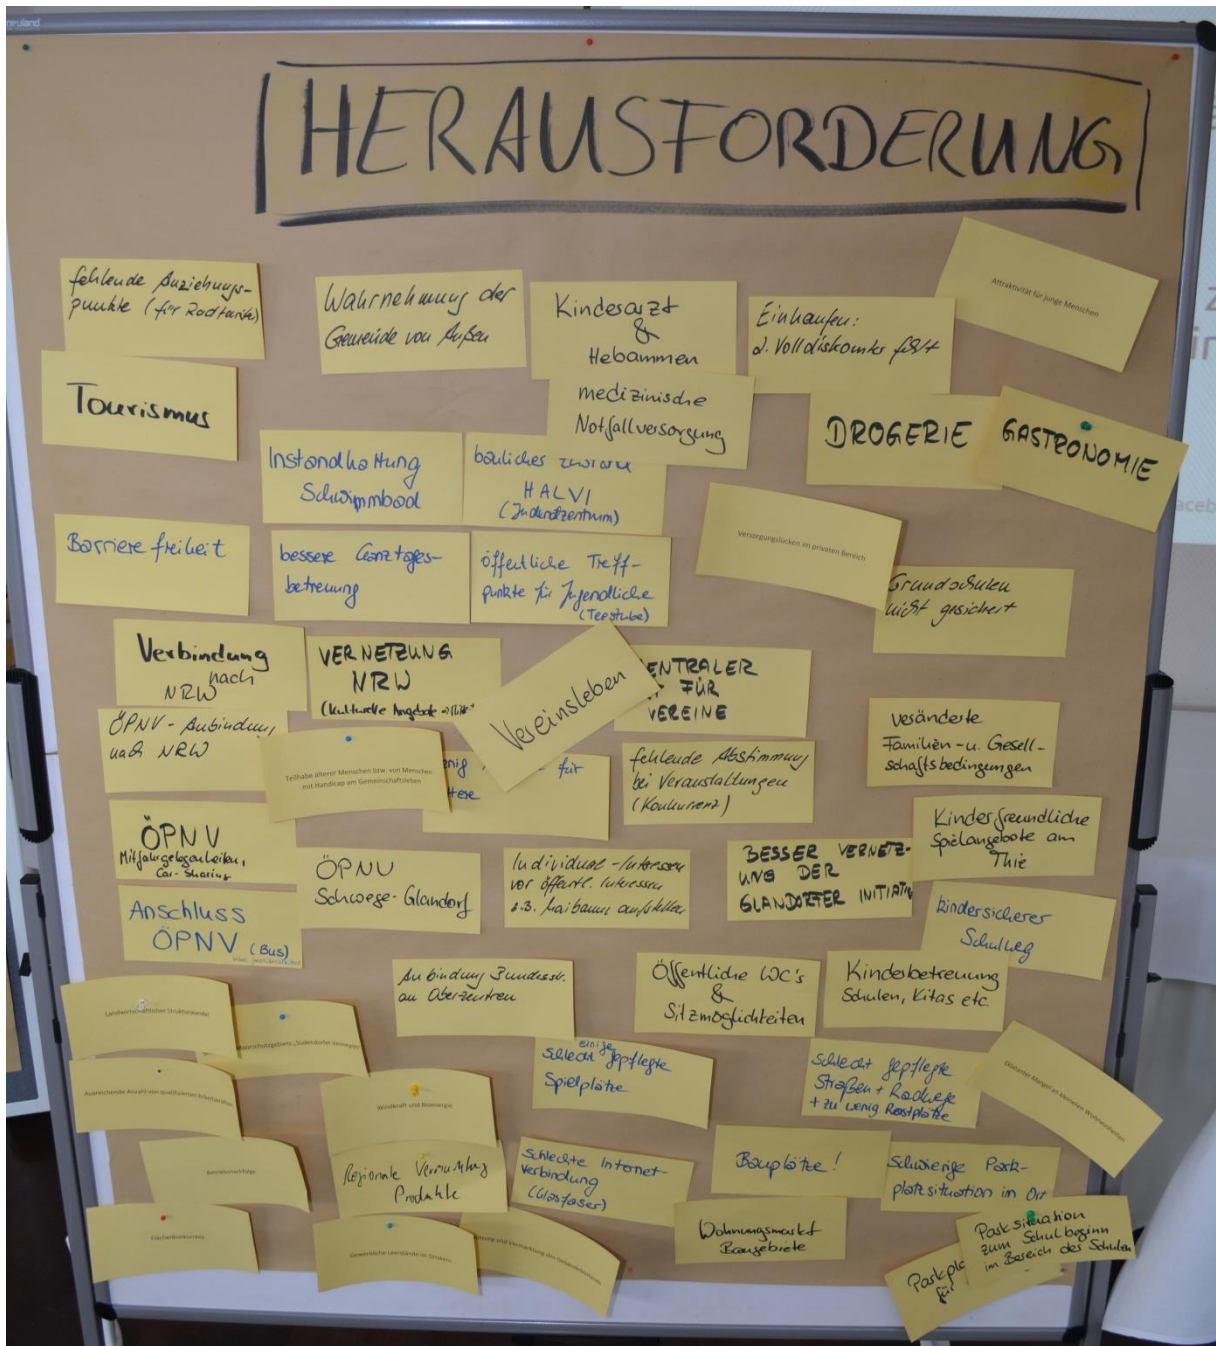 HERAUSFORDERUNG
fehlende Anziehungs-
punkte (für Radtouristen)
Wahrnehmung der
Gemeinde von Außen
Kinderarzt
&
Hebammen
Einkaufen:
Volldiskounter fehlt
Attraktivität für junge Menschen
Tourismus
medizinische
Notfallversorgung
DROGERIE
GASTRONOMIE
Instandhaltung
Schwimmbad
bauliches Zustand
HALVI
(Jugendzentrum)
Versorgungslücken im privaten Bereich
Barriere freiheit
bessere Ganztages-
betreuung
öffentliche Treff-
punkte für Jugendliche
(Teestube)
Grundschulen
nicht gesichert
Verbindung
nach
NRW
VERNETZUNG
NRW
(kulturelle Angebote
Vereinsleben
ENTRALER
FÜR
VEREINE
ÖPNV - Anbindung
nach NRW
Teilhabe älterer Menschen bzw. von Menschen
mit Handicap am Gemeinschaftsleben
für
fehlende Abstimmung
bei Veranstaltungen
(Konkurrenz)
veränderte
Familien- u. Gesell-
schaftsbedingungen
ÖPNV
Mitfahrgelegenheiten,
Car-Sharing
ÖPNV
Schwege-Glandorf
Individual-Interessen
vor öffentl. Interessen
z.B. Maibaum aufstellen
BESSER VERNETZ-
UNG DER
GLANDORFER INITIATIV
Kinderfreundliche
Spielangebote am
Thie
Anschluss
ÖPNV (Bus)
kindersicherer
Schulweg
Anbindung Bundesstr.
an Oberzentren
Öffentliche WC's
&
Sitzmöglichkeiten
Kinderbetreuung
Schulen, Kitas etc.
Landwirtschaftlicher Strukturwandel
Ausreichende Anzahl von qualifizierten Arbeitskräften
Windkraft und Bioenergie
einige
schlecht gepflegte
Spielplätze
schlecht gepflegte
Straßen + Radwege
+ zu wenig Rastplätze
Eklatanter Mangel an kleineren Wohneinheiten
Betriebsnachfolge
Regionale Vermarktung
Produkte
schlechte Internet-
verbindung
(Glasfaser)
Bauplätze!
Schwierige Park-
platzsituation im Ort
Flächenkonkurrenz
Gewerbliche Leerstände im Ortskern
Wohnungsmarkt
Baugebiete
Parksituation
zum Schulbeginn
im Bereich des Schulen
für